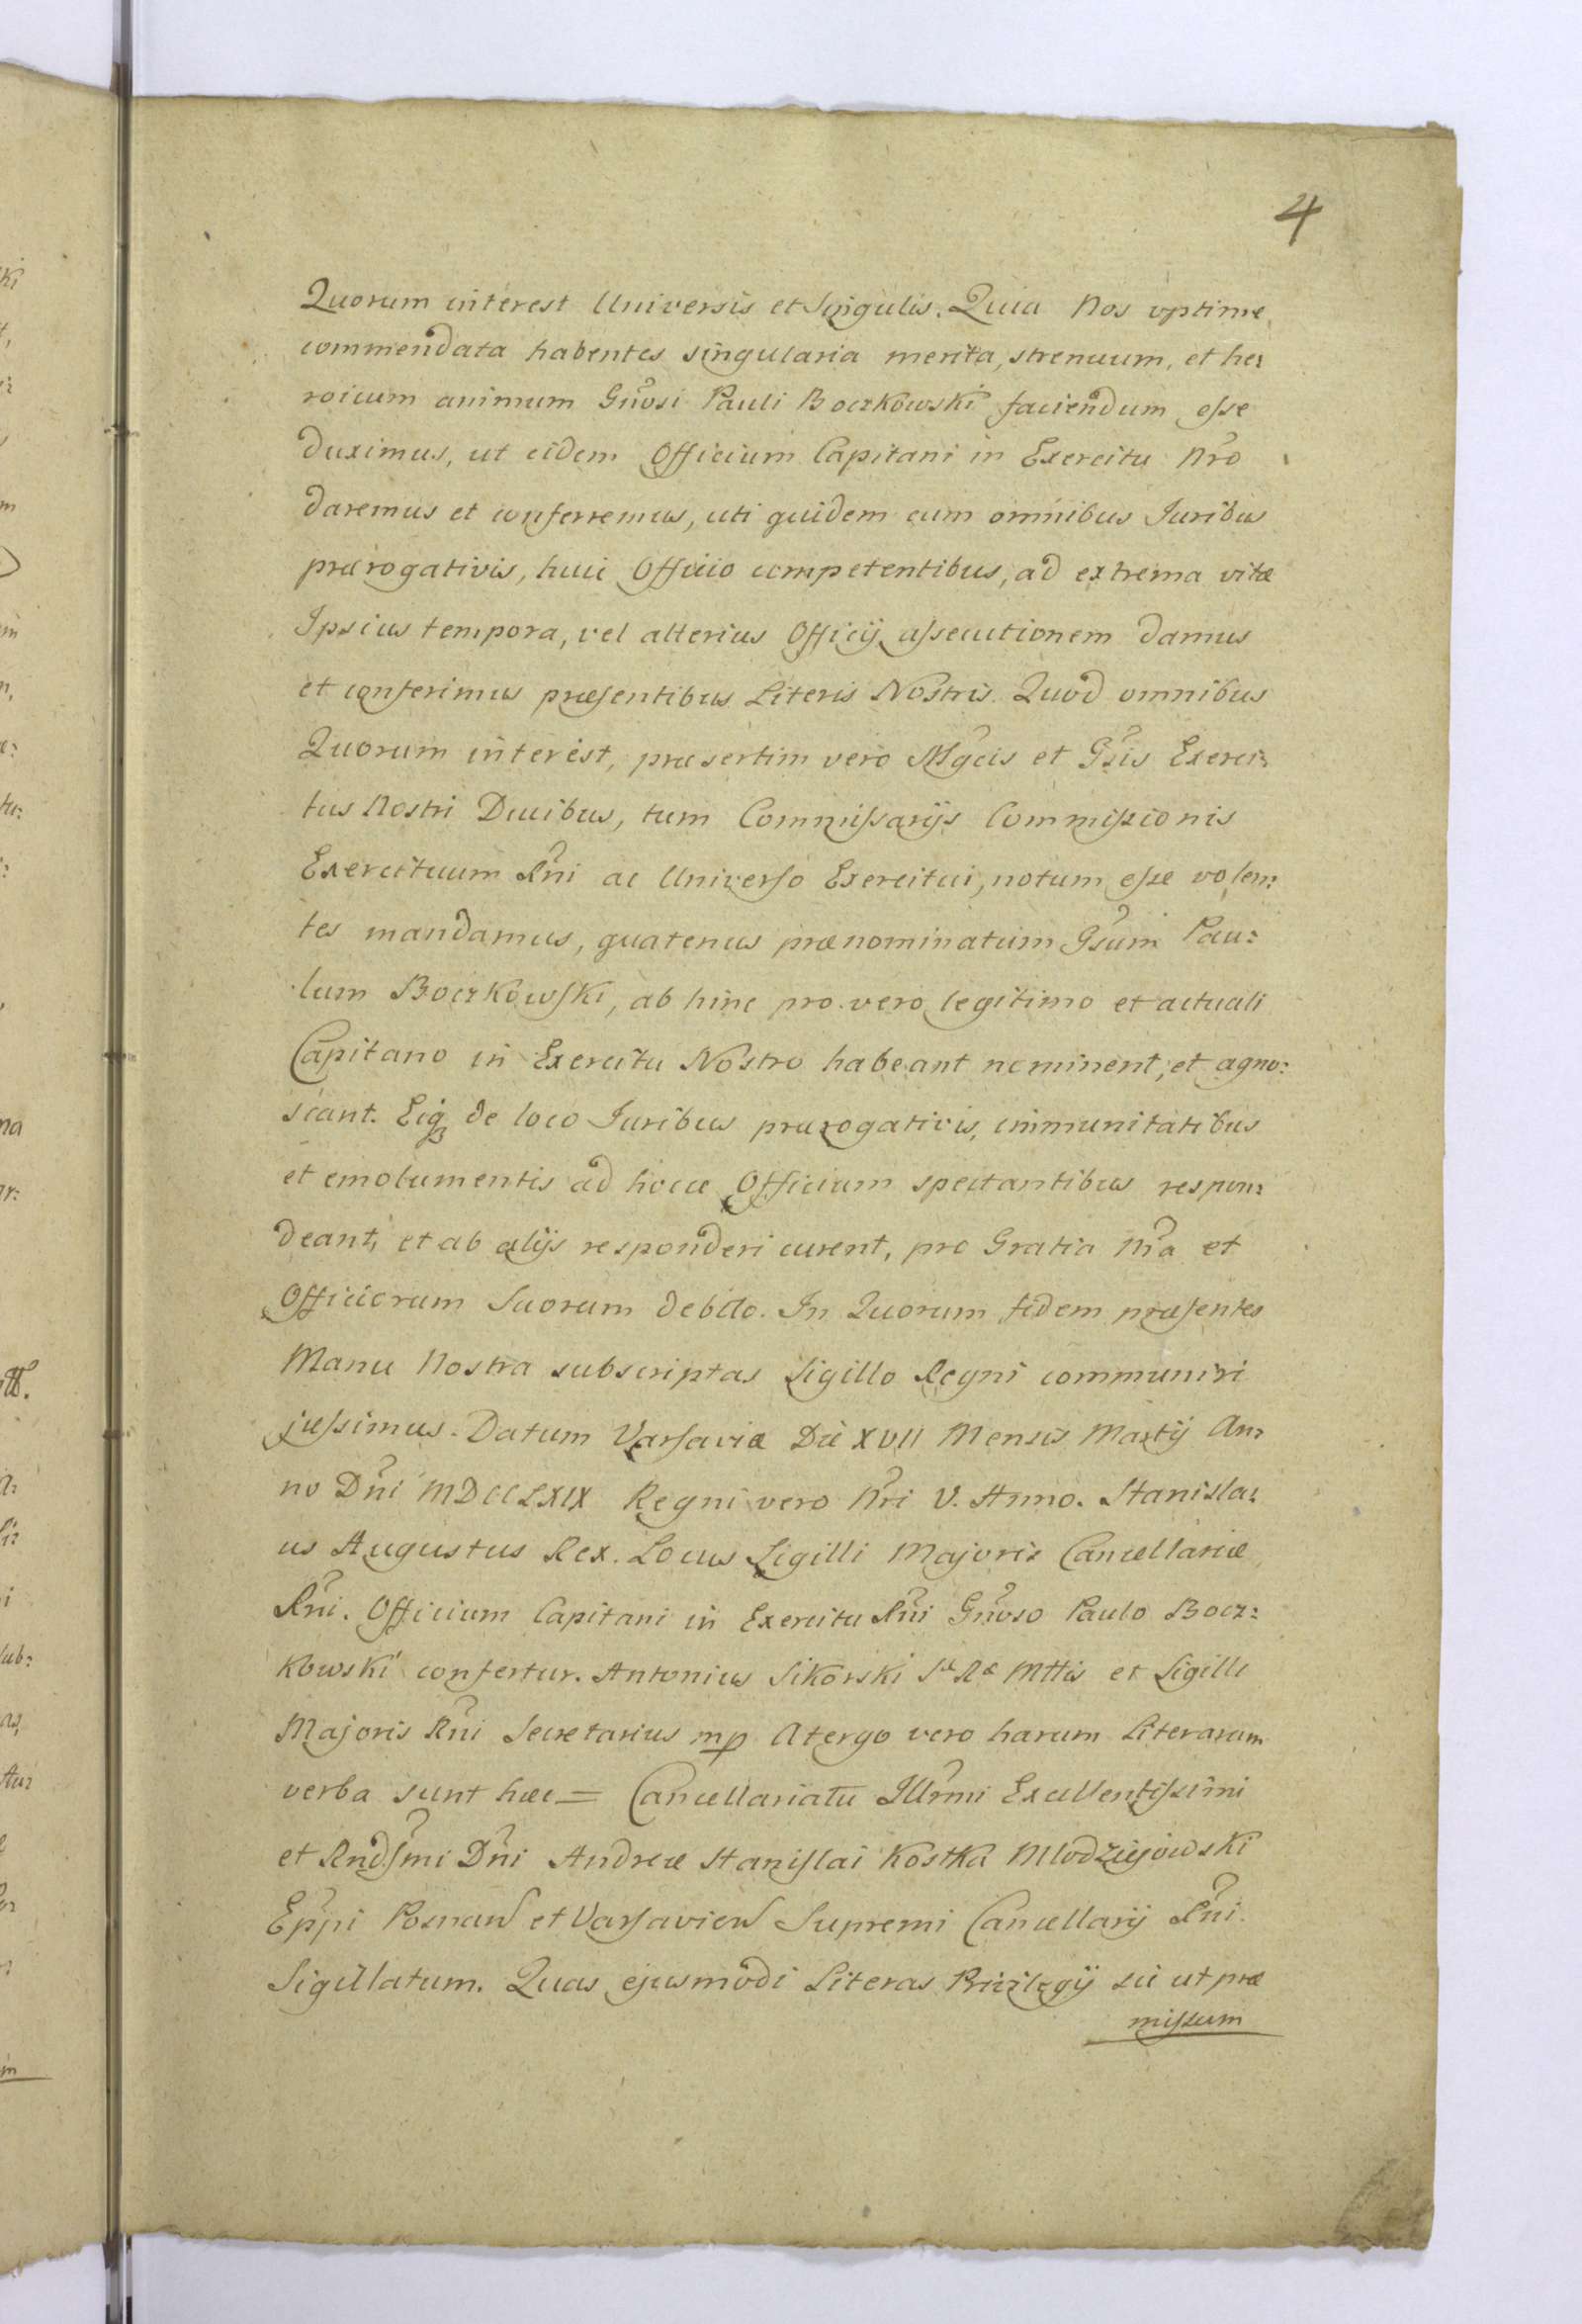 4
Quorum interest Universis et Singulis. Quia Nos optime
commendata habentes singularia merita, strenuum, et he:
roicum animum Gnosi Pauli Boczkowski faciendum esse
duximus, ut eidem Officium Capitani in Exercitu Nro
daremus et conferremus, uti quidem cum omnibus Juribus
prærogativis, huic Officio competentibus, ad extrema vitæ
Ipsius tempora, vel alterius Officij assecutionem damus
et conferimus præsentibus Literis Nostris. Quod omnibus
Quorum interest, præsertim vero Mgcis et Gsis Exerci:
tus Nostri Ducibus, tum Commissarijs Commissionis
Exercituum Rni ac Universo Exercitui, notum esse volen:
tes mandamus, quatenus prænominatum Gsum Pau:
lum Boczkowski, ab hinc pro vero legitimo et actuali
Capitano in Exercitu Nostro habeant nominent, et agno:
scant. Eiq de loco Juribus prærogativis, immunitatibus
et emolumentis ad hocce Officium spectantibus respon:
deant, et ab alijs responderi curent, pro Gratia Nra et
Officiorum Suorum debito. In Quorum fidem præsentes
Manu Nostra subscriptas Sigillo Regni communiri
jussimus. Datum Varsaviæ Die XVII Mensis Martij An:
no Dni MDCCLXIX Regni vero Nri V. Anno. Stanisla:
us Augustus Rex. Locus Sigilli Majoris Cancellariæ
Rni. Officium Capitani in Exercitu Rni Gnoso Paulo Bocz:
kowski confertur. Antonius Sikorski Sæ Ræ Mttis et Sigilli
Majoris Rni Secretarius mp Atergo vero harum Literarum
verba sunt hæc = Cancellariatu Illrmi Excellentissimi
et Rndsmi Dni Andreæ Stanislai Kostka Mlodziejowski
Eppi Posnan et Varsavien Supremi Cancellarij Rni.
Sigillatum. Quas ejusmodi Literas Privilegij sic ut præ
missum